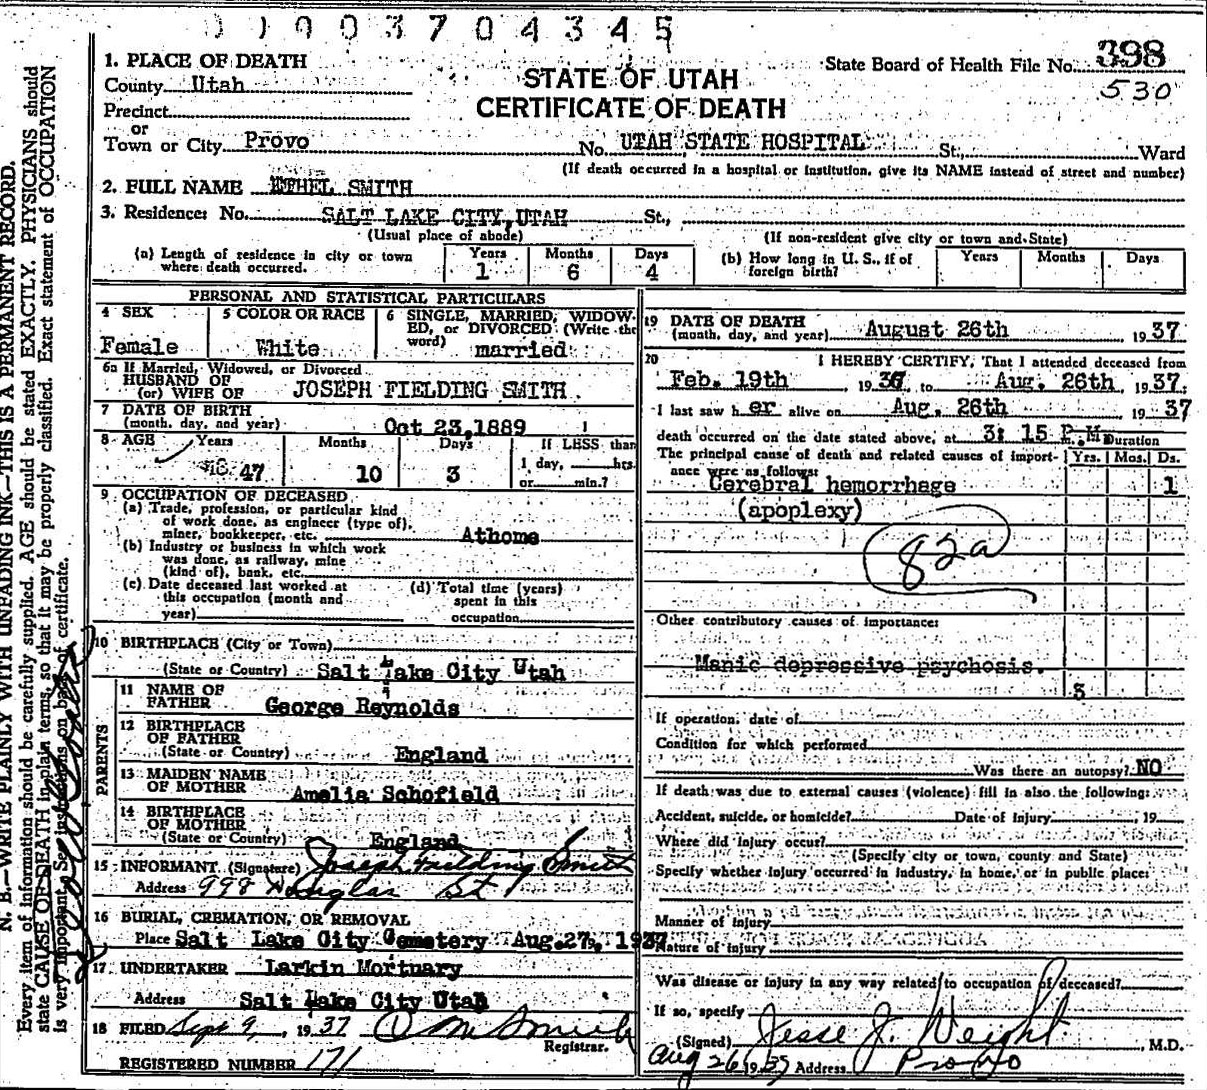 0 1 0 0 3 7 0 4 3 4 5
State Board of Health File No. 398
530
STATE OF UTAH
CERTIFICATE OF DEATH
1. PLACE OF DEATH
County Utah
Precinct
or
Town or City Provo No. UTAH STATE HOSPITAL St., Ward
(If death occurred in a hospital or institution, give its NAME instead of street and number)
2. FULL NAME ETHEL SMITH
3. Residence: No. SALT LAKE CITY, UTAH St.,
(Usual place of abode) (If non-resident give city or town and State)
(a) Length of residence in city or town where death occurred. Years 1 Months 6 Days 4
(b) How long in U. S., if of foreign birth? Years Months Days
PERSONAL AND STATISTICAL PARTICULARS
4 SEX Female
5 COLOR OR RACE White
6 SINGLE, MARRIED, WIDOWED, or DIVORCED (Write the word) married
6a If Married, Widowed, or Divorced
HUSBAND OF
(or) WIFE OF JOSEPH FIELDING SMITH
7 DATE OF BIRTH
(month, day, and year) Oct 23, 1889
8 AGE Years 47 Months 10 Days 3 If LESS than
1 day, hrs.
or min.?
9 OCCUPATION OF DECEASED
(a) Trade, profession, or particular kind
of work done, as engineer (type of),
miner, bookkeeper, etc. Athome
(b) Industry or business in which work
was done, as railway, mine
(kind of), bank, etc.
(c) Date deceased last worked at
this occupation (month and
year)
(d) Total time (years)
spent in this
occupation
10 BIRTHPLACE (City or Town)
(State or Country) Salt Lake City Utah
PARENTS
11 NAME OF
FATHER George Reynolds
12 BIRTHPLACE
OF FATHER
(State or Country) England
13 MAIDEN NAME
OF MOTHER Amelia Schofield
14 BIRTHPLACE
OF MOTHER
(State or Country) England
15 INFORMANT (Signature) Joseph Fielding Smith
Address 998 Douglas St
16 BURIAL, CREMATION, OR REMOVAL
Place Salt Lake City Cemetery Aug. 27, 1937
17 UNDERTAKER Larkin Mortuary
Address Salt Lake City Utah
18 FILED Sept 9, 1937
Registrar.
REGISTERED NUMBER 171
19 DATE OF DEATH
(month, day, and year) August 26th 1937
20 I HEREBY CERTIFY, That I attended deceased from
Feb. 19th 1936, to Aug. 26th, 1937.
I last saw her alive on Aug. 26th 1937
death occurred on the date stated above, at 3: 15 P.M. Duration
The principal cause of death and related causes of importance were as follows: Yrs. Mos. Ds.
Cerebral hemorrhage 1
(apoplexy)
82a
Other contributory causes of importance:
Manic depressive psychosis.
3
If operation, date of
Condition for which performed
Was there an autopsy? NO
If death was due to external causes (violence) fill in also the following:
Accident, suicide, or homicide? Date of injury, 19
Where did injury occur?
(Specify city or town, county and State)
Specify whether injury occurred in industry, in home, or in public place:
Manner of injury
Nature of injury
Was disease or injury in any way related to occupation of deceased?
If so, specify
(Signed) Jesse J. Weight, M.D.
Aug 26 1937 Address Provo
N. B.—WRITE PLAINLY WITH UNFADING INK—THIS IS A PERMANENT RECORD.
Every item of information should be carefully supplied. AGE should be stated EXACTLY. PHYSICIANS should
state CAUSE OF DEATH in plain terms, so that it may be properly classified. Exact statement of OCCUPATION
is very important. See instructions on back of certificate.